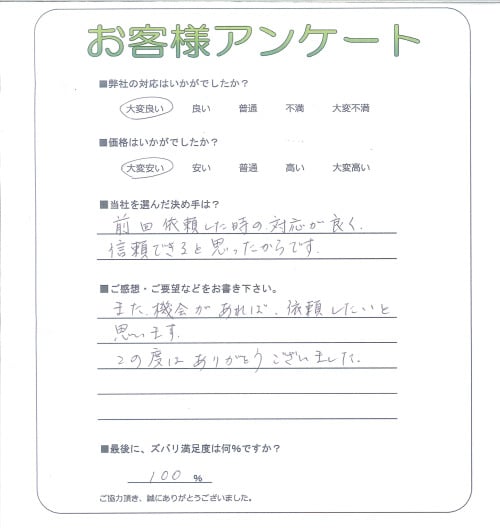 お客様アンケート
■弊社の対応はいかがでしたか？
大変良い 良い 普通 不満 大変不満
■価格はいかがでしたか？
大変安い 安い 普通 高い 大変高い
■当社を選んだ決め手は？
前回依頼した時の対応が良く、
信頼できると思ったからです。
■ご感想・ご要望などをお書き下さい。
また、機会があれば、依頼したいと
思います。
この度はありがとうございました。
■最後に、ズバリ満足度は何%ですか？
100 %
ご協力頂き、誠にありがとうございました。